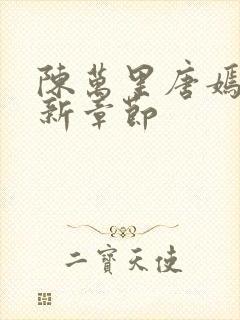 陳萬里唐嫣
新章節
二寶天使